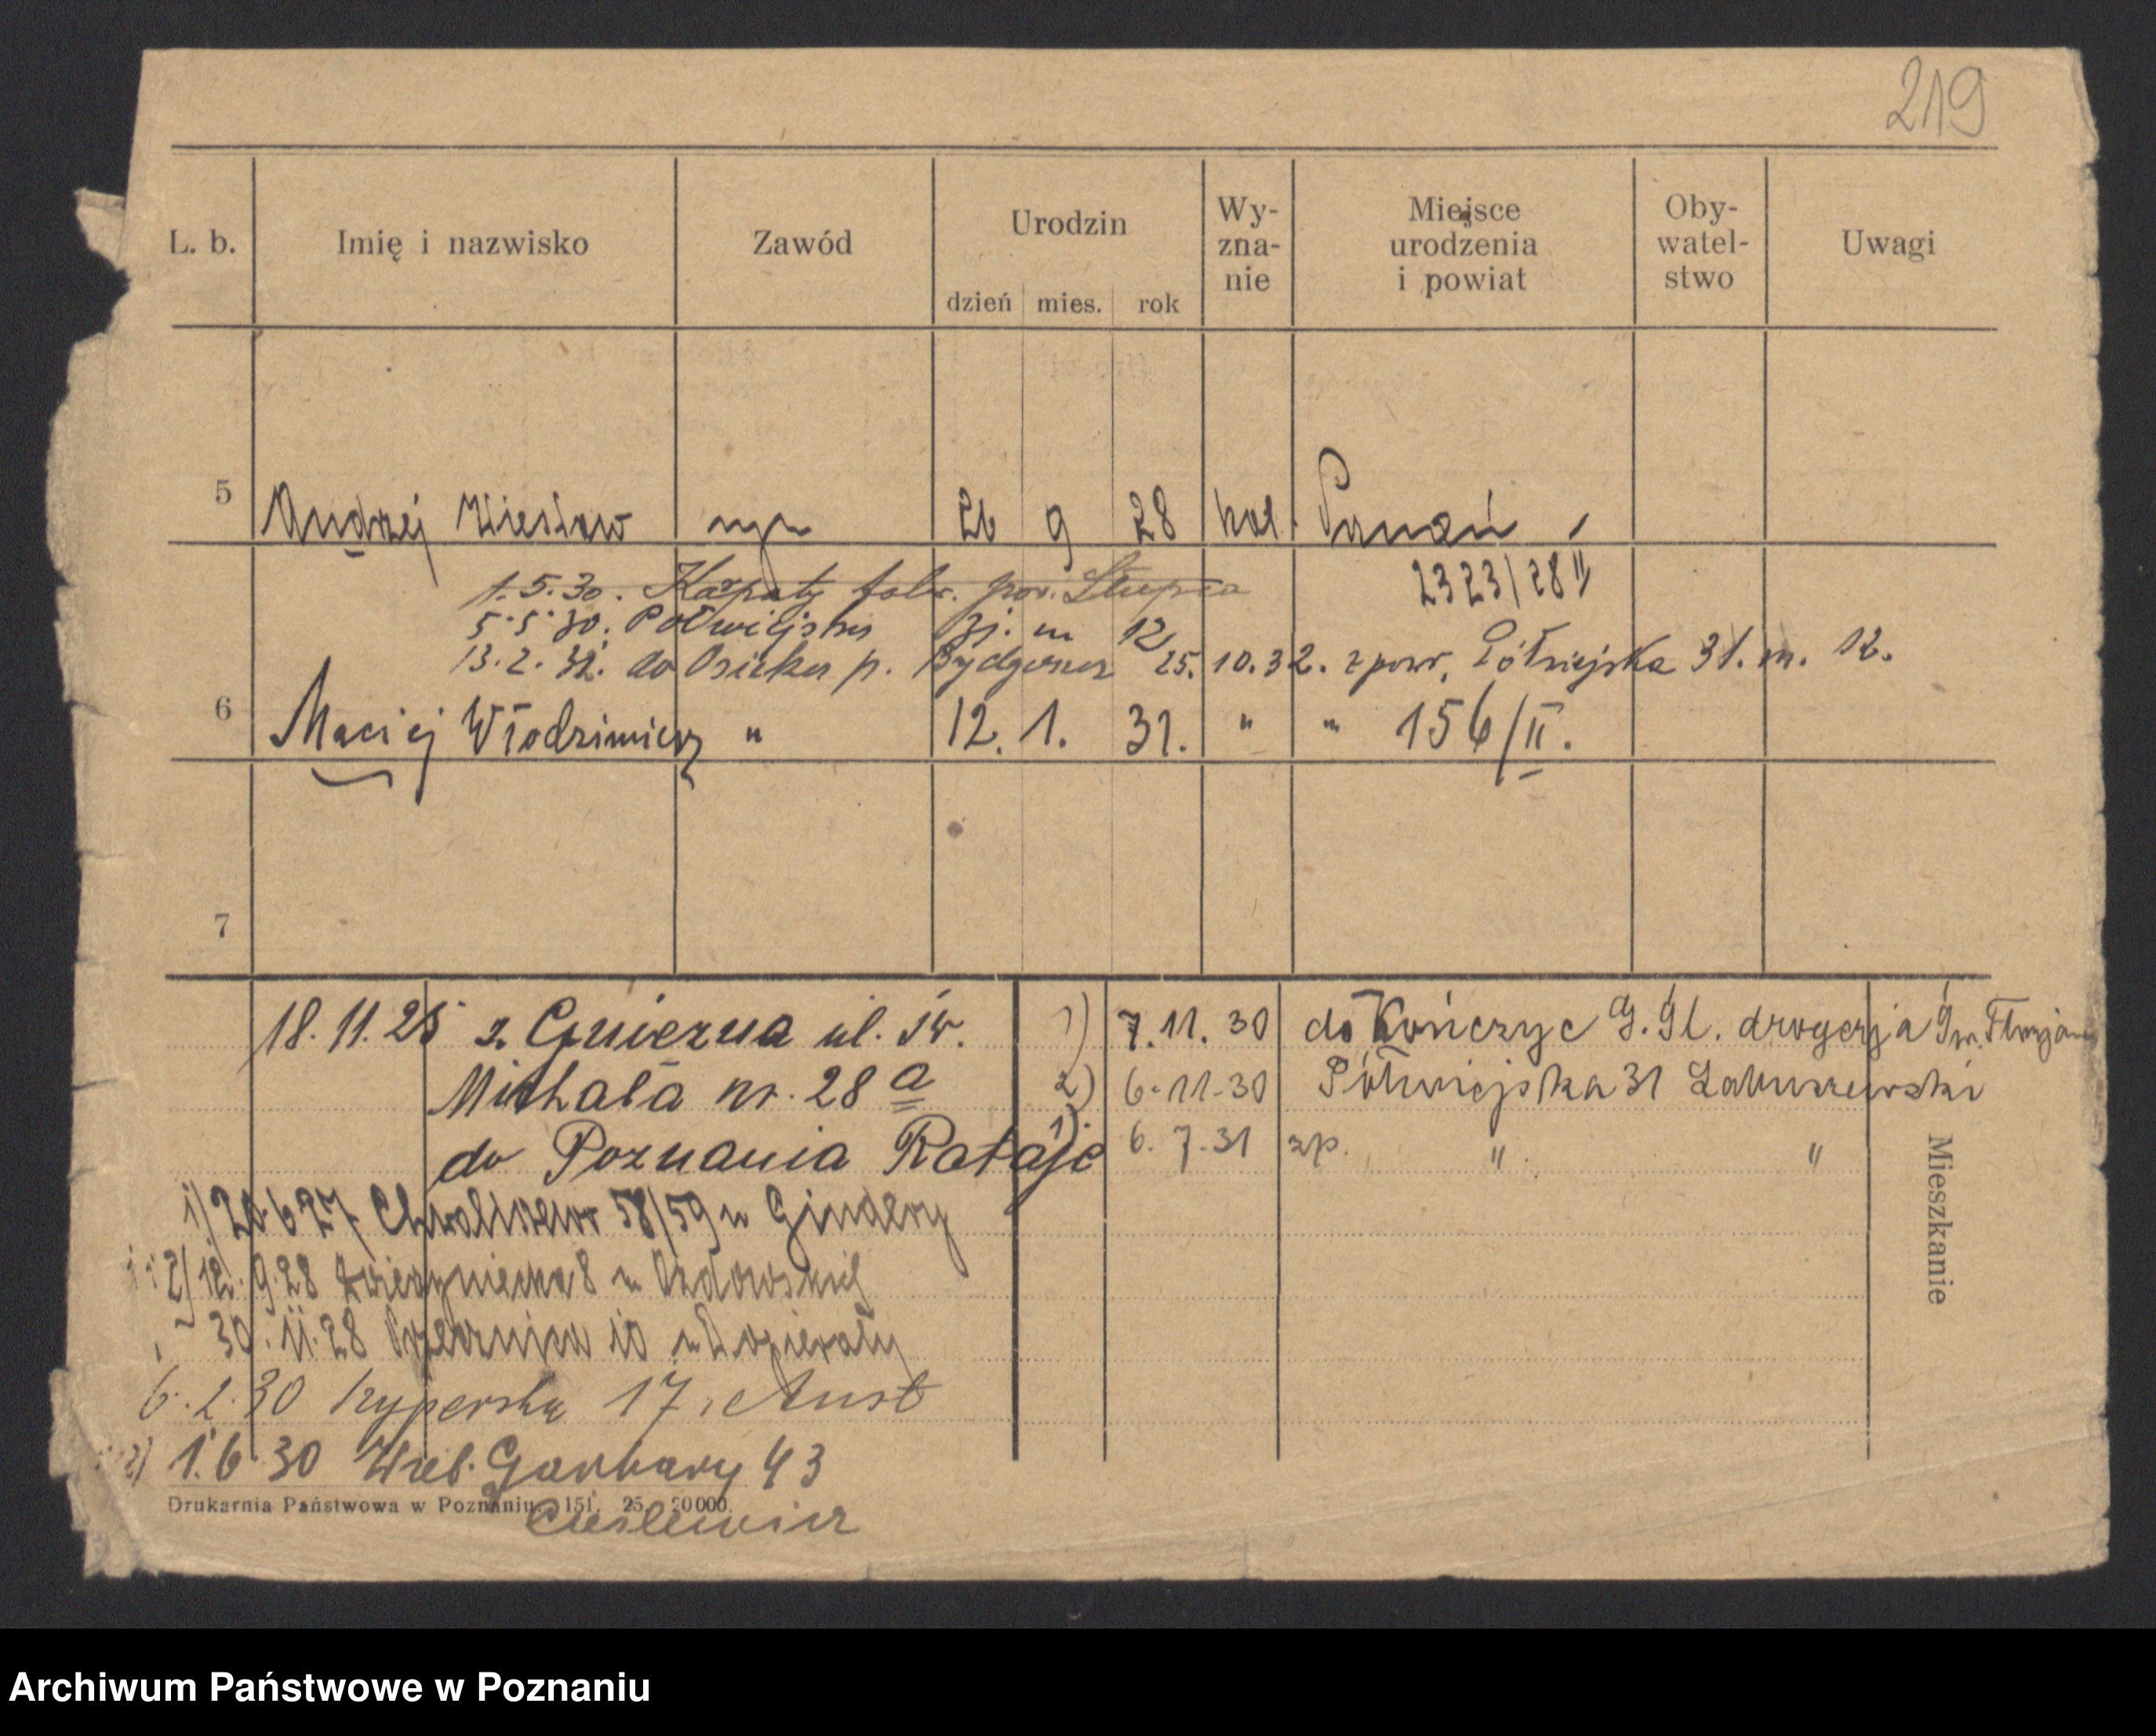 219
L. b. Imię i nazwisko Zawód Urodzin dzień mies. rok Wy- zna- nie Miejsce urodzenia i powiat Oby- watel- stwo Uwagi
5 Andrzej Wiesław syn 26 9 28 kat. Poznań
1.5.30. Karpaty folw. pow. Słupca 2323/28 II
5.5.30. Półwiejska 31. m 12
13.2.32. do Osieka p. Bydgoszcz 25.10.32. z powr. Półwiejska 31. m. 12.
6 Maciej Włodzimierz " 12. 1. 31. " " 156/II.
7
18.11.25 z Gniezna ul. św.
Michała nr. 28 a
do Poznania Rataje
1) 20.6.27 Chwaliszewo 58/59 u Gindery
2) 12.9.28 Zwierzyniecka 8 u
30.11.28 10 u Dopierały
6.2.30 17, Aust
2) 1.6.30 Wiel. Garbary 43
Cieślewicz
1) 7.11.30 do Kończyc G. Śl. drogerja Św. Florjana
2) 6.11.30 Półwiejska 31
1) 6.7.31 zp. " "
Mieszkanie
Drukarnia Państwowa w Poznaniu. 151. 25. 20000.
Archiwum Państwowe w Poznaniu